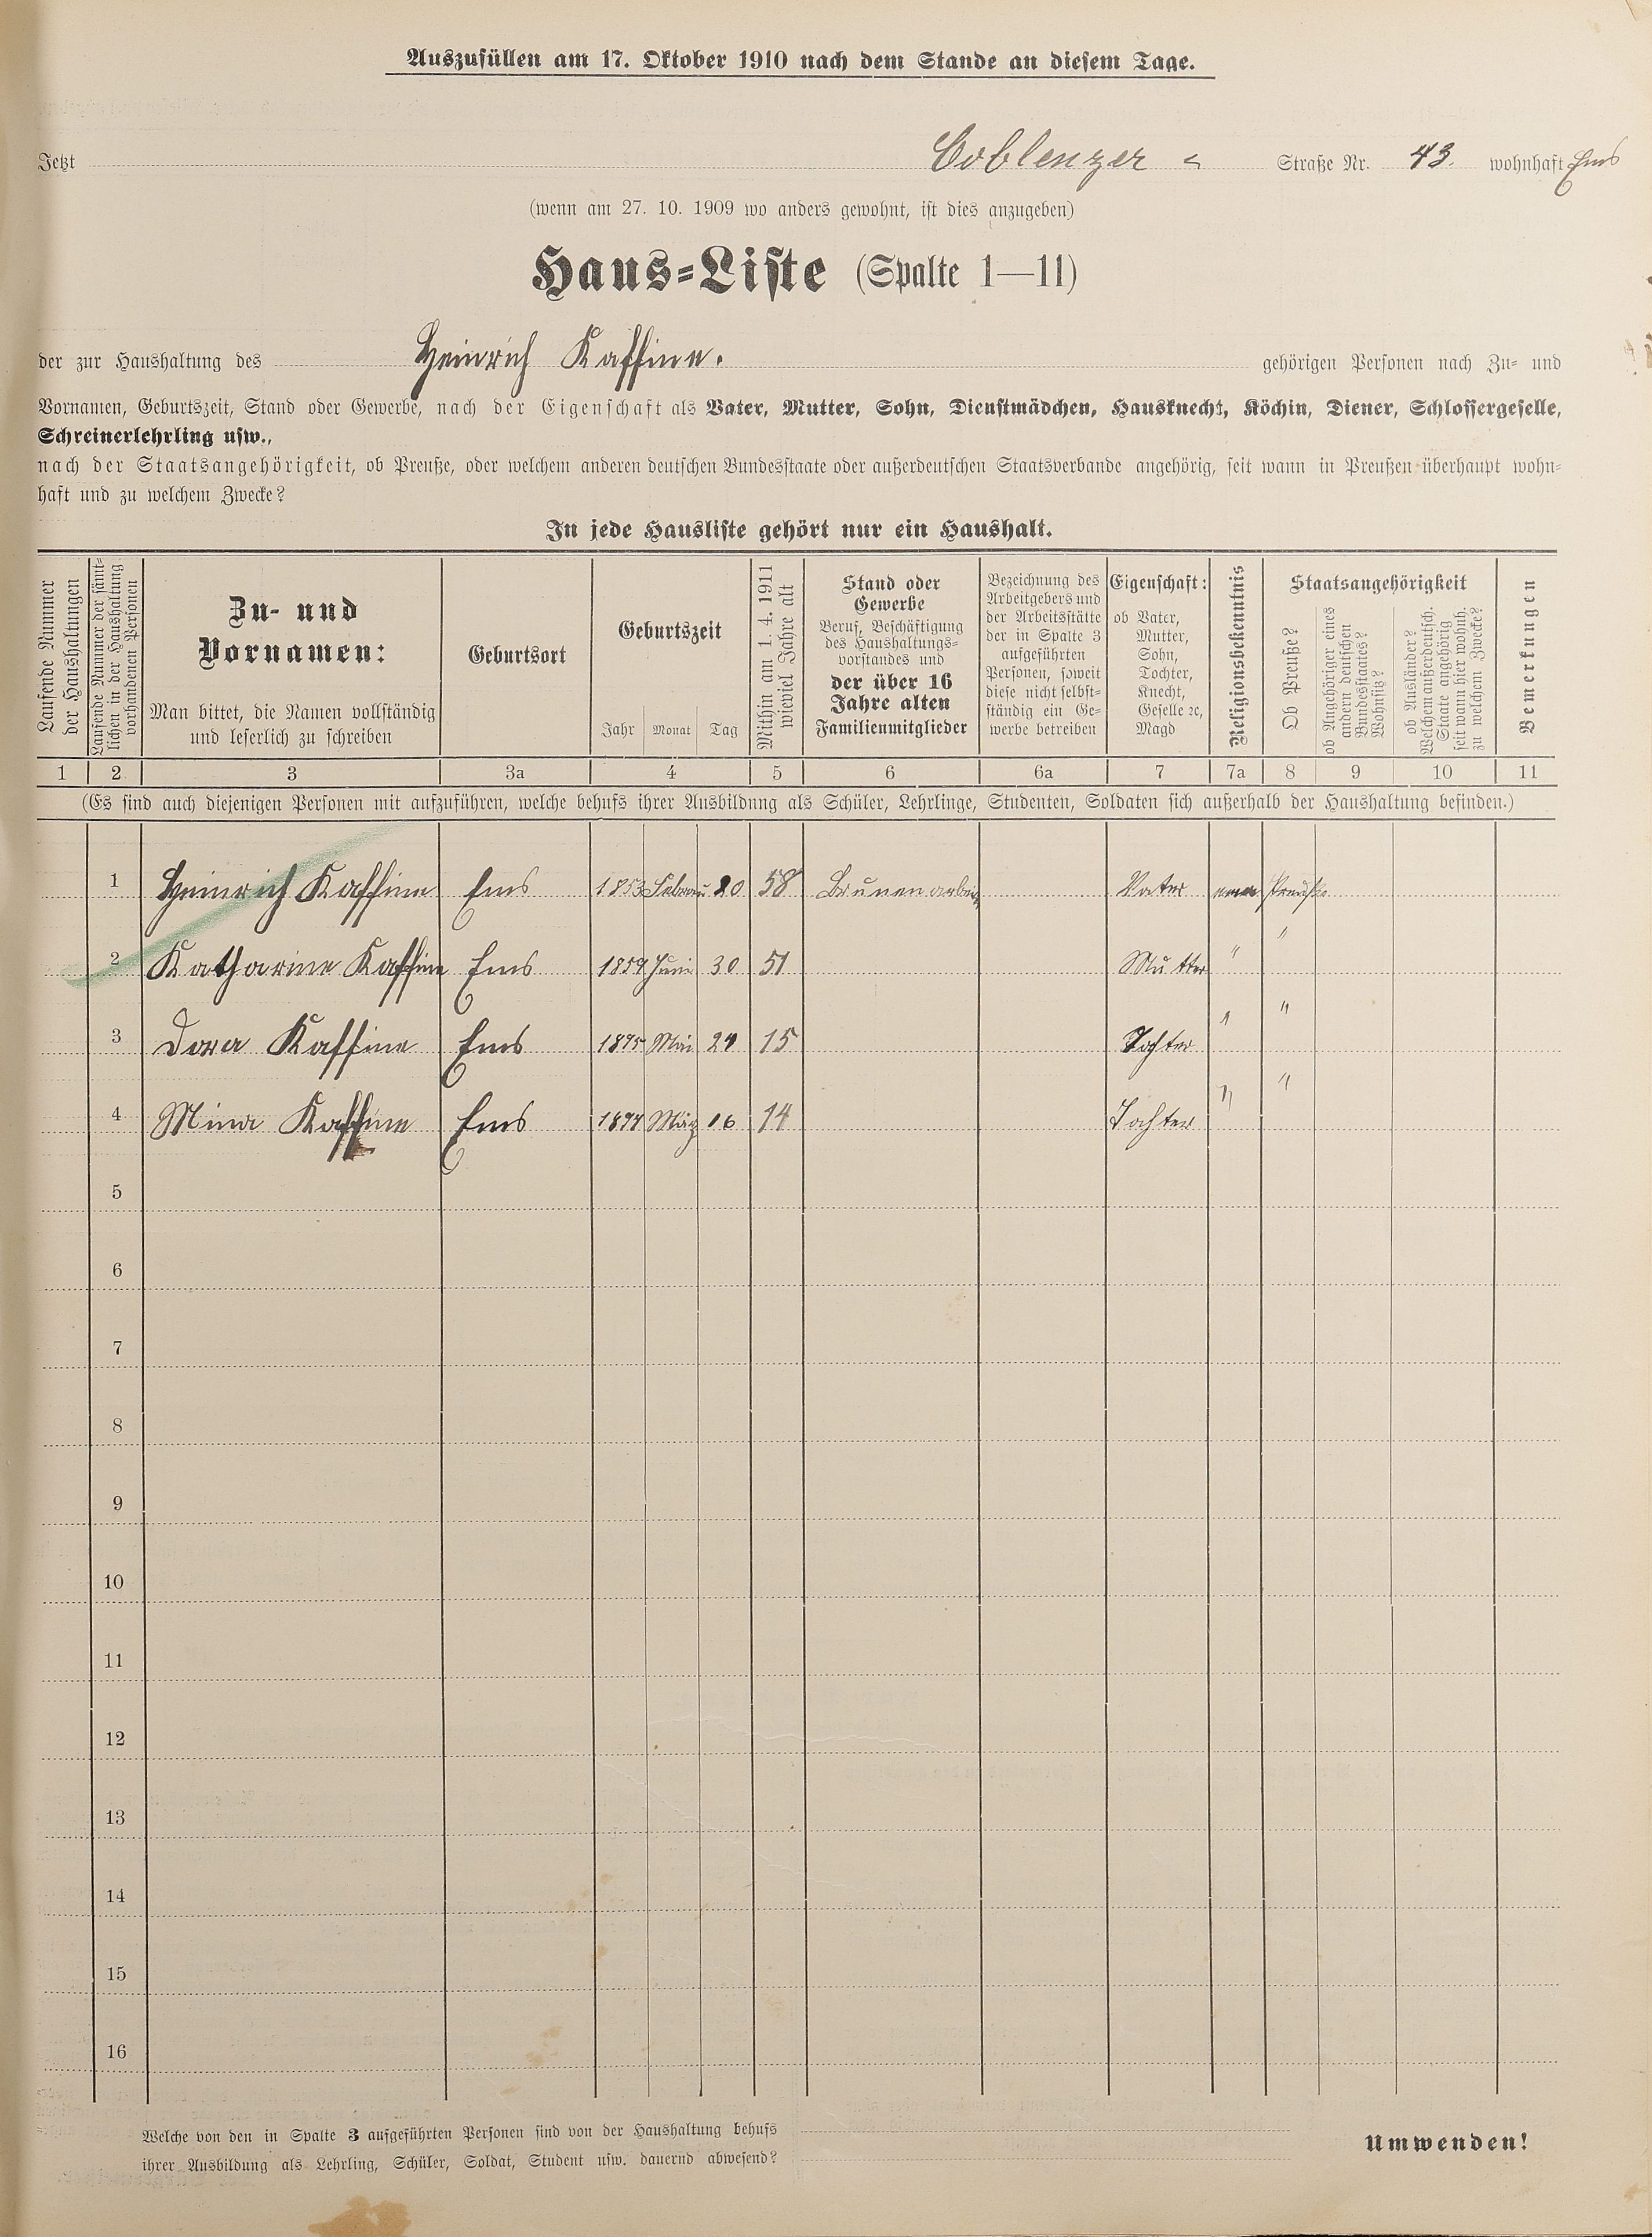 Auszufüllen am 17. Oktober 1910 nach dem Stande an diesem Tage.
Jetzt Coblenzer Straße Nr. 43. wohnhaft Ems
(wenn am 27. 10. 1909 wo anders gewohnt, ist dies anzugeben)
Haus-Liste (Spalte 1—11)
der zur Haushaltung des Heinrich Kaffine. gehörigen Personen nach Zu- und
Vornamen, Geburtszeit, Stand oder Gewerbe, nach der Eigenschaft als Vater, Mutter, Sohn, Dienstmädchen, Hausknecht, Köchin, Diener, Schlossergeselle,
Schreinerlehrling usw.,
nach der Staatsangehörigkeit, ob Preuße, oder welchem anderen deutschen Bundesstaate oder außerdeutschen Staatsverbande angehörig, seit wann in Preußen überhaupt wohn-
haft und zu welchem Zwecke?
In jede Hausliste gehört nur ein Haushalt.
Laufende Nummer
der Haushaltungen
Laufende Nummer der sämt-
lichen in der Haushaltung
vorhandenen Personen
Zu- und
Vornamen:
Man bittet, die Namen vollständig
und leserlich zu schreiben
Geburtsort
Geburtszeit
Jahr Monat Tag
Mithin am 1. 4. 1911
wieviel Jahre alt
Stand oder
Gewerbe
Beruf, Beschäftigung
des Haushaltungs-
vorstandes und
der über 16
Jahre alten
Familienmitglieder
Bezeichnung des
Arbeitgebers und
der Arbeitsstätte
der in Spalte 3
aufgeführten
Personen, soweit
diese nicht selbst-
ständig ein Ge-
werbe betreiben
Eigenschaft:
ob Vater,
Mutter,
Sohn,
Tochter,
Knecht,
Geselle ꝛc,
Magd
Religionsbekenntnis
Staatsangehörigkeit
Ob Preuße?
ob Angehöriger eines
andern deutschen
Bundesstaates?
Wohnsitz?
ob Ausländer?
Welchem außerdeutsch.
Staate angehörig
seit wann hier wohnh.
zu welchem Zwecke?
Bemerkungen
1 2 3 3a 4 5 6 6a 7 7a 8 9 10 11
(Es sind auch diejenigen Personen mit aufzuführen, welche behufs ihrer Ausbildung als Schüler, Lehrlinge, Studenten, Soldaten sich außerhalb der Haushaltung befinden.)
1 Heinrich Kaffine Ems 1853 20 58 Brunenarbeit Vater Preuße
2 Katharine Kaffine Ems 1859 Juni 30 51 Mutter " "
3 Dora Kaffine Ems 1895 Mai 15 Tochter " "
4 Mina Kaffine Ems 1897 März 16 14 Tochter " "
5
6
7
8
9
10
11
12
13
14
15
16
Welche von den in Spalte 3 aufgeführten Personen sind von der Haushaltung behufs
ihrer Ausbildung als Lehrling, Schüler, Soldat, Student usw. dauernd abwesend?
Umwenden!